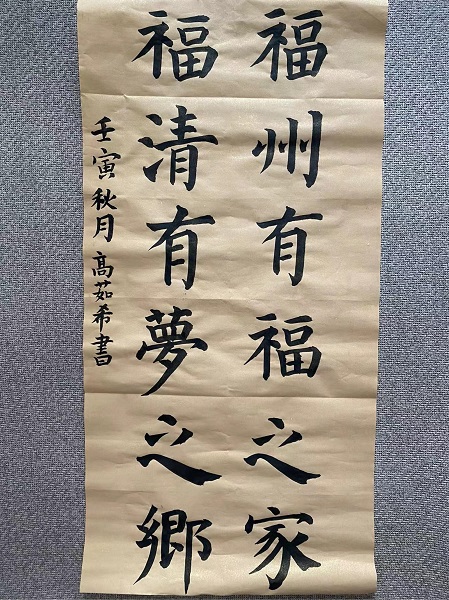 福州有福之家
福清有夢之鄉
壬寅秋月高茹希書